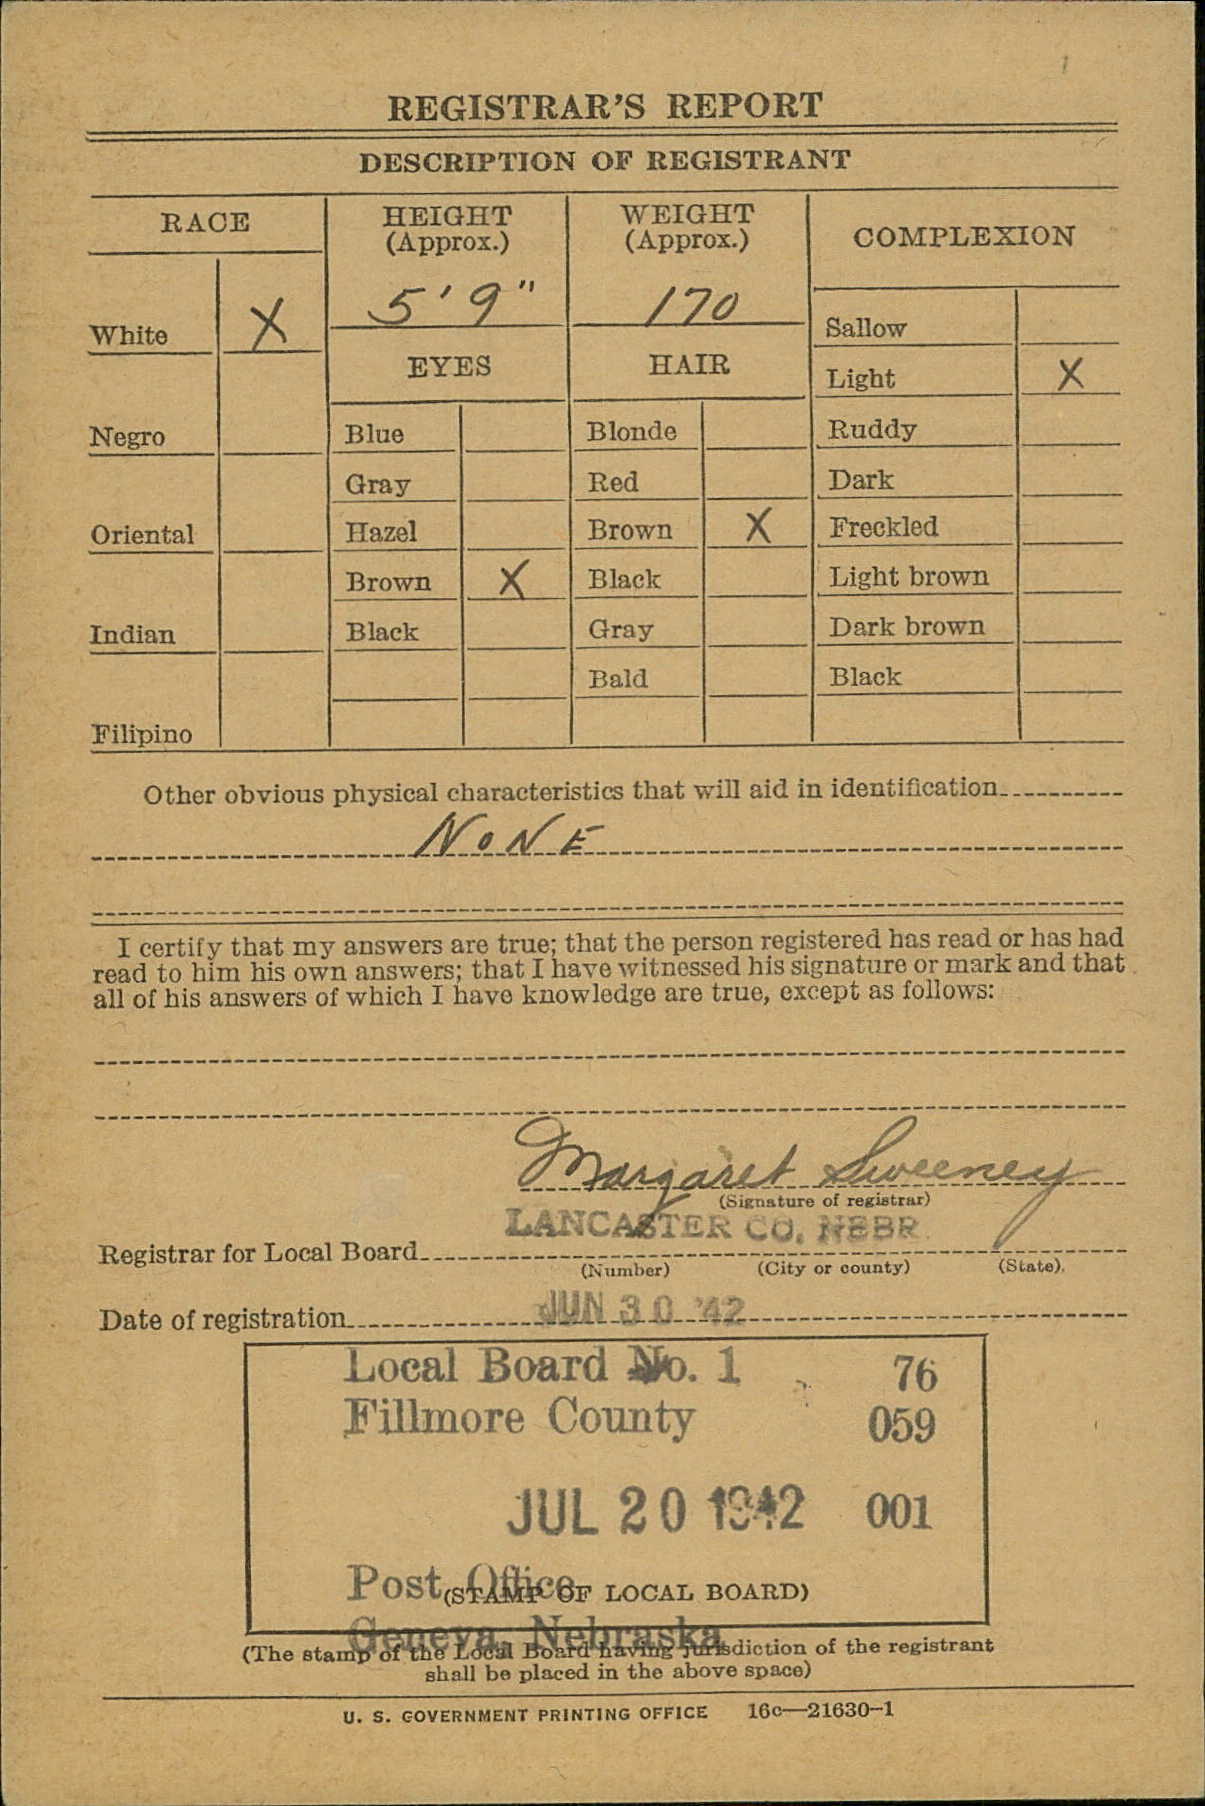 REGISTRAR'S REPORT
DESCRIPTION OF REGISTRANT
RACE
HEIGHT (Approx.)
WEIGHT (Approx.)
COMPLEXION
White X
5' 9"
170
Sallow
EYES
HAIR
Light X
Negro
Blue
Blonde
Ruddy
Gray
Red
Dark
Oriental
Hazel
Brown X
Freckled
Brown X
Black
Light brown
Indian
Black
Gray
Dark brown
Bald
Black
Filipino
Other obvious physical characteristics that will aid in identification
NONE
I certify that my answers are true; that the person registered has read or has had
read to him his own answers; that I have witnessed his signature or mark and that
all of his answers of which I have knowledge are true, except as follows:
Margaret Sweeney
(Signature of registrar)
LANCASTER CO. NEBR.
Registrar for Local Board
(Number) (City or county) (State)
Date of registration JUN 30 '42
Local Board No. 1 76
Fillmore County 059
JUL 20 1942 001
Post Office
(STAMP OF LOCAL BOARD)
Geneva, Nebraska
(The stamp of the Local Board having jurisdiction of the registrant
shall be placed in the above space)
U. S. GOVERNMENT PRINTING OFFICE 16c—21630-1